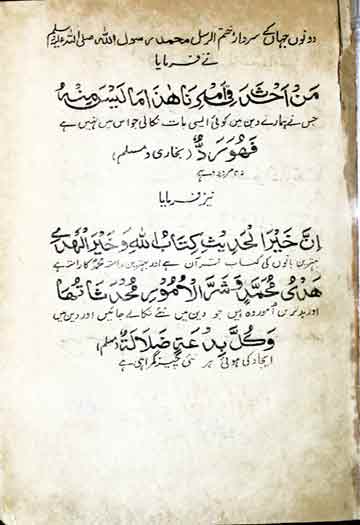 دونوں جہاں کے سردار ختم الرسل محمد رسول اللہ صلی اللہ علیہ وسلم
نے فرمایا
مَنْ اَحْدَثَ فِیْ اَمْرِنَا هٰذَا مَا لَیْسَ مِنْهُ
جس نے ہمارے دین میں کوئی ایسی بات نکالی جو اس میں نہیں ہے
فَهُوَ رَدٌّ (بخاری و مسلم)
وہ مردود ہے
نیز فرمایا
اِنَّ خَیْرَ الْحَدِیْثِ کِتَابُ اللّٰهِ وَخَیْرَ الْهَدْیِ
بہترین باتوں کی کتاب قرآن ہے اور بہترین راستہ محمدؐ کا راستہ ہے
هَدْیُ مُحَمَّدٍ وَشَرَّ الْاُمُوْرِ مُحْدَثَاتُهَا
اور بدترین امور وہ ہیں جو دین میں نئے نکالے جائیں اور دین میں
وَکُلُّ بِدْعَةٍ ضَلَالَةٌ (مسلم)
ایجاد کی ہوئی ہر نئی چیز گمراہی ہے